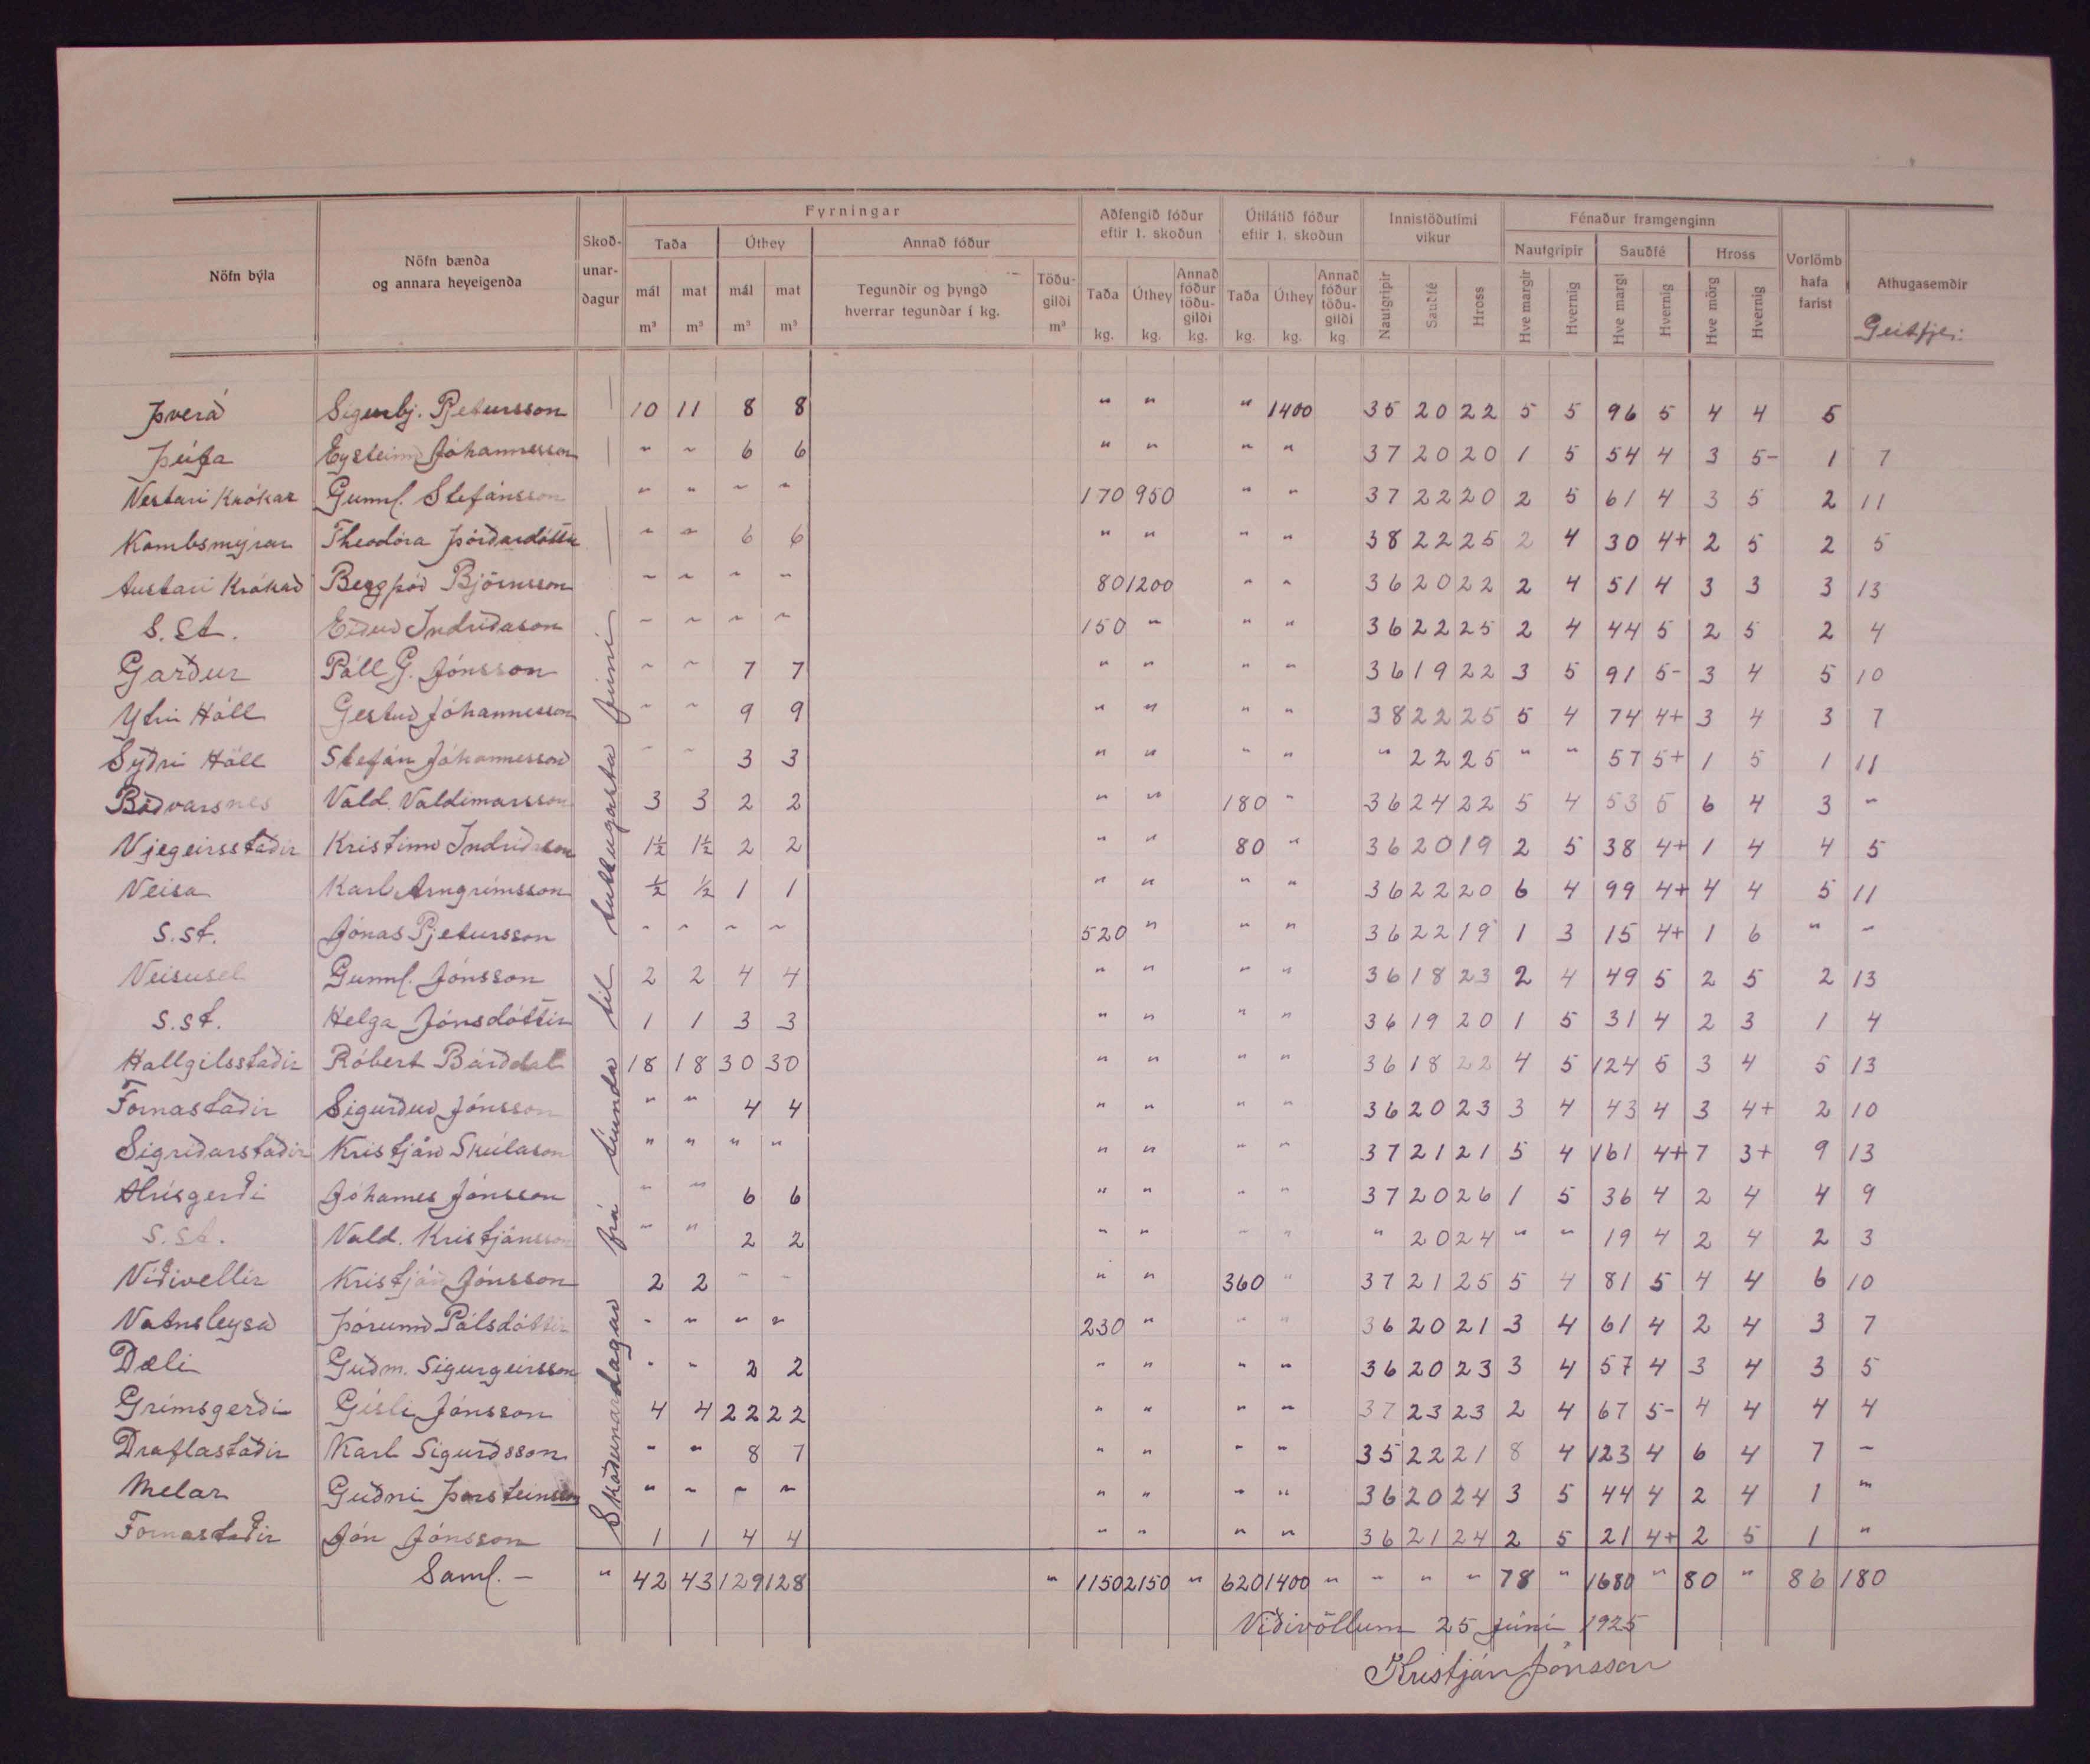 Nöfn býla | Nöfn bænda og annara heyeigenda | Skoð-unar-dagur | Fyrningar | Aðfengið fóður eftir 1. skoðun | Útilátið fóður eftir 1. skoðun | Innistöðutími vikur | Fénaður framgenginn | Vorlömb hafa farist | Athugasemdir
Taða | Úthey | Annað fóður | Nautgripir | Sauðfé | Hross
mál m³ | mat m³ | mál m³ | mat m³ | Tegundir og þyngd hverrar tegundar í kg. | Töðu-gildi m³ | Taða kg. | Úthey kg. | Annað fóður töðu-gildi kg. | Taða kg. | Úthey kg. | Annað fóður töðu-gildi kg. | Nautgripir | Sauðfé | Hross | Hve margir | Hvernig | Hve margt | Hvernig | Hve mörg | Hvernig | Geitfje:
Skoðunardagar frá tíunda til tuttugasta júní
Þverá | Sigurbj. Pjetursson | 10 | 11 | 8 | 8 | " | " | " | 1400 | 35 | 20 | 22 | 5 | 5 | 96 | 5 | 4 | 4 | 5
Þúfa | Eysteinn Jóhannesson | " | " | 6 | 6 | " | " | " | " | 37 | 20 | 20 | 1 | 5 | 54 | 4 | 3 | 5- | 1 | 7
Vestari Krókar | Gunnl. Stefánsson | " | " | " | " | 170 | 950 | " | " | 37 | 22 | 20 | 2 | 5 | 61 | 4 | 3 | 5 | 2 | 11
Kambsmýrar | Theodóra Þórðardóttir | " | " | 6 | 6 | " | " | " | " | 38 | 22 | 25 | 2 | 4 | 30 | 4+ | 2 | 5 | 2 | 5
Austari Krókar | Bergþór Björnsson | " | " | " | " | 80 | 1200 | " | " | 36 | 20 | 22 | 2 | 4 | 51 | 4 | 3 | 3 | 3 | 13
S. St. | Eiður Indriðason | " | " | " | " | 150 | " | " | " | 36 | 22 | 25 | 2 | 4 | 44 | 5 | 2 | 5 | 2 | 4
Garður | Páll G. Jónsson | " | " | 7 | 7 | " | " | " | " | 36 | 19 | 22 | 3 | 5 | 91 | 5- | 3 | 4 | 5 | 10
Ytri Hóll | Gestur Jóhannesson | " | " | 9 | 9 | " | " | " | " | 38 | 22 | 25 | 5 | 4 | 74 | 4+ | 3 | 4 | 3 | 7
Syðri Hóll | Stefán Jóhannesson | " | " | 3 | 3 | " | " | " | " | " | 22 | 25 | " | " | 57 | 5+ | 1 | 5 | 1 | 11
Böðvarsnes | Vald. Valdimarsson | 3 | 3 | 2 | 2 | " | " | 180 | " | 36 | 24 | 22 | 5 | 4 | 53 | 5 | 6 | 4 | 3 | "
Vjegeirsstaðir | Kristinn Indriðason | 1½ | 1½ | 2 | 2 | " | " | 80 | " | 36 | 20 | 19 | 2 | 5 | 38 | 4+ | 1 | 4 | 4 | 5
Veisa | Karl Arngrímsson | ½ | ½ | 1 | 1 | " | " | " | " | 36 | 22 | 20 | 6 | 4 | 99 | 4+ | 4 | 4 | 5 | 11
S. st. | Jónas Pjetursson | " | " | " | " | 520 | " | " | " | 36 | 22 | 19 | 1 | 3 | 15 | 4+ | 1 | 6 | " | "
Veisusel | Gunnl. Jónsson | 2 | 2 | 4 | 4 | " | " | " | " | 36 | 18 | 23 | 2 | 4 | 49 | 5 | 2 | 5 | 2 | 13
S. st. | Helga Jónsdóttir | 1 | 1 | 3 | 3 | " | " | " | " | 36 | 19 | 20 | 1 | 5 | 31 | 4 | 2 | 3 | 1 | 4
Hallgilsstaðir | Róbert Bárðdal | 18 | 18 | 30 | 30 | " | " | " | " | 36 | 18 | 22 | 4 | 5 | 124 | 5 | 3 | 4 | 5 | 13
Fornastaðir | Sigurður Jónsson | " | " | 4 | 4 | " | " | " | " | 36 | 20 | 23 | 3 | 4 | 43 | 4 | 3 | 4+ | 2 | 10
Sigríðarstaðir | Kristján Skúlason | " | " | " | " | " | " | " | " | 37 | 21 | 21 | 5 | 4 | 161 | 4+ | 7 | 3+ | 9 | 13
Hrísgerði | Jóhannes Jónsson | " | " | 6 | 6 | " | " | " | " | 37 | 20 | 26 | 1 | 5 | 36 | 4 | 2 | 4 | 4 | 9
S. St. | Vald. Kristjánsson | " | " | 2 | 2 | " | " | " | " | " | 20 | 24 | " | " | 19 | 4 | 2 | 4 | 2 | 3
Víðivellir | Kristján Jónsson | 2 | 2 | " | " | " | " | 360 | " | 37 | 21 | 25 | 5 | 4 | 81 | 5 | 4 | 4 | 6 | 10
Vatnsleysa | Þórunn Pálsdóttir | " | " | " | " | 230 | " | " | " | 36 | 20 | 21 | 3 | 4 | 61 | 4 | 2 | 4 | 3 | 7
Dæli | Guðm. Sigurgeirsson | " | " | 2 | 2 | " | " | " | " | 36 | 20 | 23 | 3 | 4 | 57 | 4 | 3 | 4 | 3 | 5
Grímsgerði | Gísli Jónsson | 4 | 4 | 22 | 22 | " | " | " | " | 37 | 23 | 23 | 2 | 4 | 67 | 5- | 4 | 4 | 4 | 4
Draflastaðir | Karl Sigurðsson | " | " | 8 | 7 | " | " | " | " | 35 | 22 | 21 | 8 | 4 | 123 | 4 | 6 | 4 | 7 | "
Melar | Guðni Þorsteinsson | " | " | " | " | " | " | " | " | 36 | 20 | 24 | 3 | 5 | 44 | 4 | 2 | 4 | 1 | "
Fornastaðir | Jón Jónsson | 1 | 1 | 4 | 4 | " | " | " | " | 36 | 21 | 24 | 2 | 5 | 21 | 4+ | 2 | 5 | 1 | "
Saml. - | " | 42 | 43 | 129 | 128 | " | 1150 | 2150 | " | 620 | 1400 | " | " | " | " | 78 | " | 1680 | " | 80 | " | 86 | 180
Víðivöllum 25 júní 1925
Kristján Jónsson